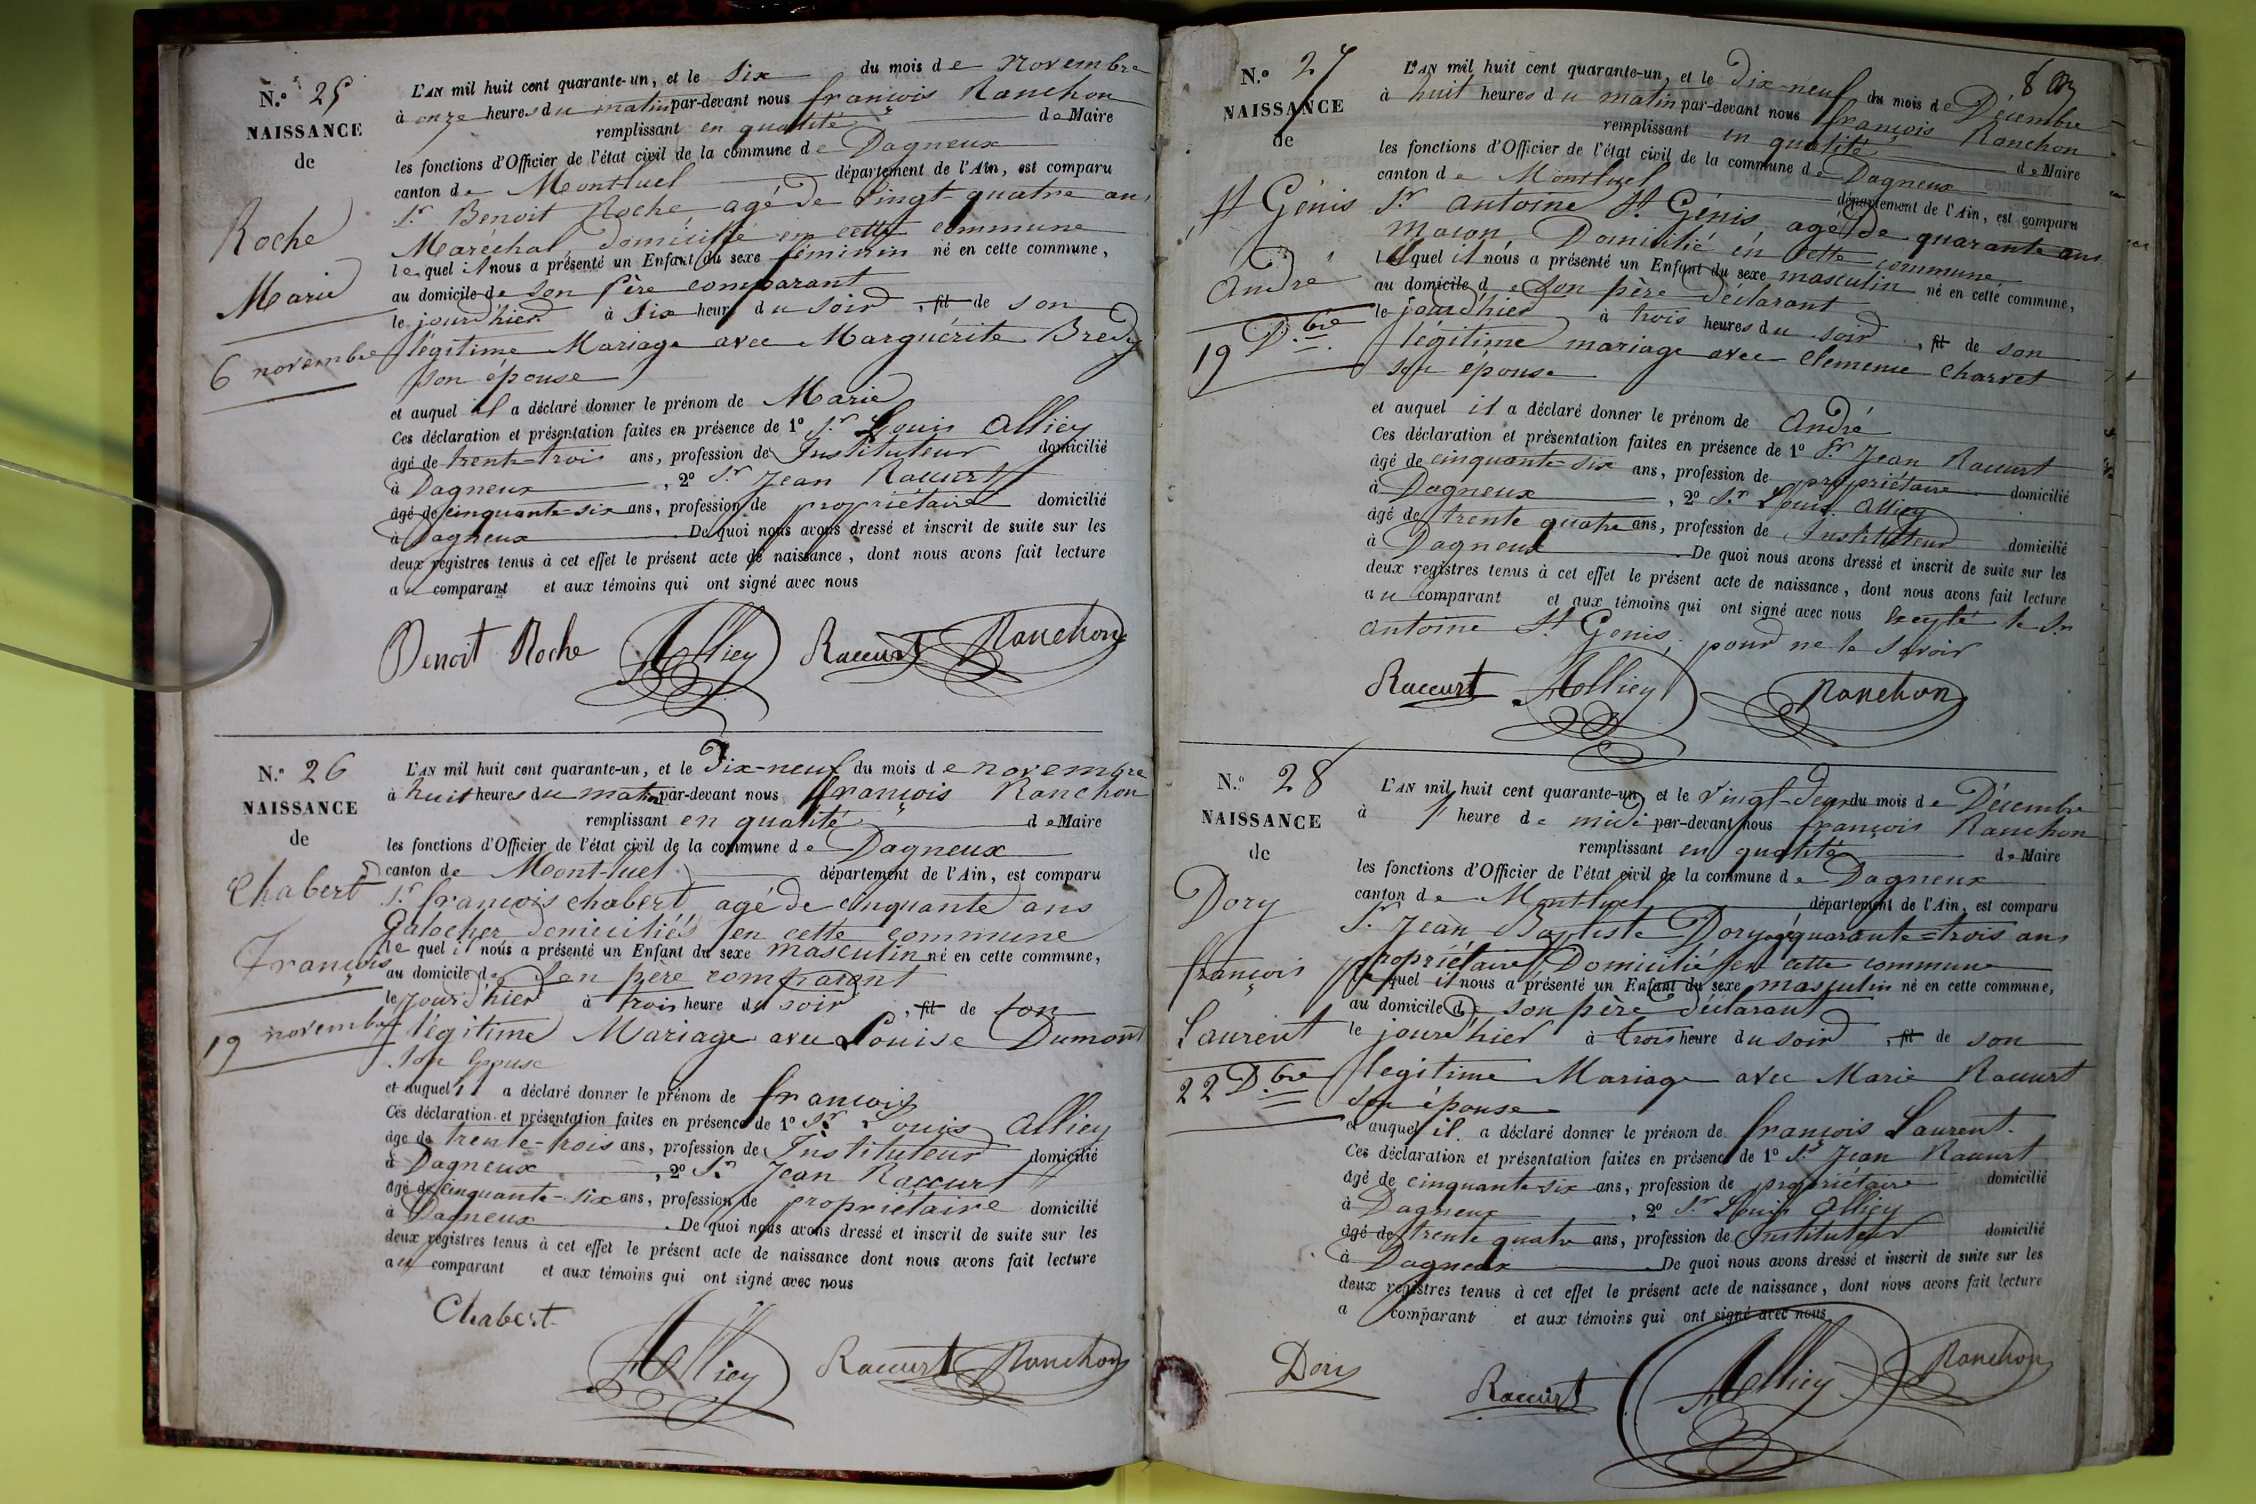 N.º 25
NAISSANCE
de
Roche
Marie
6 novembre
L'AN mil huit cent quarante-un, et le Six du mois de novembre
à onze heures du matin par-devant nous françois Ranchon
remplissant en qualité de Maire
les fonctions d'Officier de l'état civil de la commune de Dagneux
canton de Montluel département de l'Ain, est comparu
Sr Benoit Roche, agé de vingt-quatre ans
Maréchal, domicilié en cette commune
lequel il nous a présenté un Enfant du sexe féminin né en cette commune,
au domicile de son père comparant
le jourd'hier à six heures du soir, fit de son
légitime Mariage avec Marguérite Bredy
son épouse
et auquel il a déclaré donner le prénom de Marie
Ces déclaration et présentation faites en présence de 1º Sr Louis Alliey
âgé de trente-trois ans, profession de Instituteur domicilié
à Dagneux, 2º Sr Jean Raccurt
âgé de cinquante-six ans, profession de propriétaire domicilié
à Dagneux De quoi nous avons dressé et inscrit de suite sur les
deux registres tenus à cet effet le présent acte de naissance, dont nous avons fait lecture
au comparant et aux témoins qui ont signé avec nous
Benoit Roche Alliey Raccurt Ranchon
N.º 26
NAISSANCE
de
Chabert
François
19 novembre
L'AN mil huit cent quarante-un, et le Dix-neuf du mois de novembre
à huit heures du matin par-devant nous françois Ranchon
remplissant en qualité de Maire
les fonctions d'Officier de l'état civil de la commune de Dagneux
canton de Mont-luel département de l'Ain, est comparu
Sr françois chabert, agé de cinquante ans
Galocher domiciliés en cette commune
lequel il nous a présenté un Enfant du sexe masculin né en cette commune,
au domicile de son père comparant
le jourd'hier à trois heure du soir, fit de son
légitime Mariage avec Louise Dumont
son épouse
et auquel il a déclaré donner le prénom de françois
Ces déclaration et présentation faites en présence de 1º Sr Louis Alliey
âgé de trente-trois ans, profession de Instituteur domicilié
à Dagneux, 2º Sr Jean Raccurt
âgé de cinquante-six ans, profession de propriétaire domicilié
à Dagneux. De quoi nous avons dressé et inscrit de suite sur les
deux registres tenus à cet effet le présent acte de naissance dont nous avons fait lecture
au comparant et aux témoins qui ont signé avec nous
Chabert Alliey Raccurt Ranchon
N.º 27
NAISSANCE
de
St Génis
André
19 Dbre
L'AN mil huit cent quarante-un, et le Dix-neuf du mois de Décembre
à huit heures du matin par-devant nous françois Ranchon
remplissant en qualité de Maire
les fonctions d'Officier de l'état civil de la commune de Dagneux
canton de Montluel département de l'Ain, est comparu
Sr antoine St Génis, agé de quarante ans
maçon, Domicilié en cette commune
lequel il nous a présenté un Enfant du sexe masculin né en cette commune,
au domicile de son père déclarant
le jourd'hier à trois heures du soir, fit de son
légitime mariage avec Clemence Charvet
son épouse
et auquel il a déclaré donner le prénom de André
Ces déclaration et présentation faites en présence de 1º Sr Jean Raccurt
âgé de cinquante-six ans, profession de propriétaire domicilié
à Dagneux, 2º Sr Louis Alliey
âgé de trente quatre ans, profession de Instituteur domicilié
à Dagneux. De quoi nous avons dressé et inscrit de suite sur les
deux registres tenus à cet effet le présent acte de naissance, dont nous avons fait lecture
au comparant et aux témoins qui ont signé avec nous Excepté le Sr
antoine St Genis, pour ne le savoir
Raccurt Alliey Ranchon
N.º 28
NAISSANCE
de
Dory
françois
Laurent
22 Dbre
L'AN mil huit cent quarante-un, et le vingt-deux du mois de Décembre
à heure de midi par-devant nous françois Ranchon
remplissant en qualité de Maire
les fonctions d'Officier de l'état civil de la commune de Dagneux
canton de Montluel département de l'Ain, est comparu
Sr Jean Baptiste Dory agé quarante-trois ans
propriétaire, Domicilié en cette commune
lequel il nous a présenté un Enfant du sexe masculin né en cette commune,
au domicile de son père déclarant
le jourd'hier à trois heure du soir, fit de son
legitime Mariage avec Marie Raccurt
son épouse
et auquel il a déclaré donner le prénom de françois Laurent.
Ces déclaration et présentation faites en présence de 1º Sr Jean Raccurt
âgé de cinquante-six ans, profession de propriétaire domicilié
à Dagneux, 2º Sr Louis Alliey
âgé de trente quatre ans, profession de Instituteur domicilié
à Dagneux. De quoi nous avons dressé et inscrit de suite sur les
deux registres tenus à cet effet le présent acte de naissance, dont nous avons fait lecture
a comparant et aux témoins qui ont signé avec nous
Dory Raccurt Alliey Ranchon